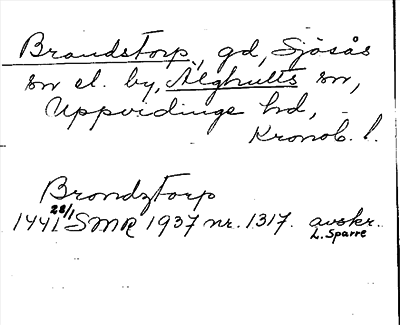 Brandstorp, gd, Sjösås
sn el. by, Älghults sn,
Uppvidinge hd,
Kronob. l.
Brondztorp
1441 28/1 SMR 1937 nr. 1317. avskr.
L. Sparre